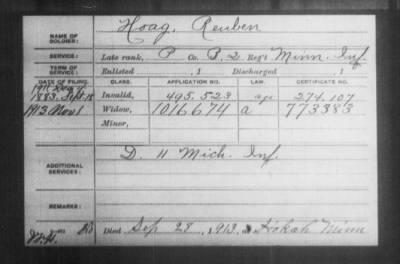 NAME OF SOLDIER: Hoag, Reuben
SERVICE: Late rank, P Co. B, 2 Reg't Minn. Inf.
TERM OF SERVICE: Enlisted , 1 Discharged , 1
DATE OF FILING. CLASS. APPLICATION NO. LAW. CERTIFICATE NO.
1883, Sept 18 Invalid, 495.523 age 274.107
1913 Nov 1 Widow, 1016674 a 773383
Minor,
ADDITIONAL SERVICES: D. 11 Mich. Inf.
REMARKS:
Died Sep 28, 1913, at Hokah Minn